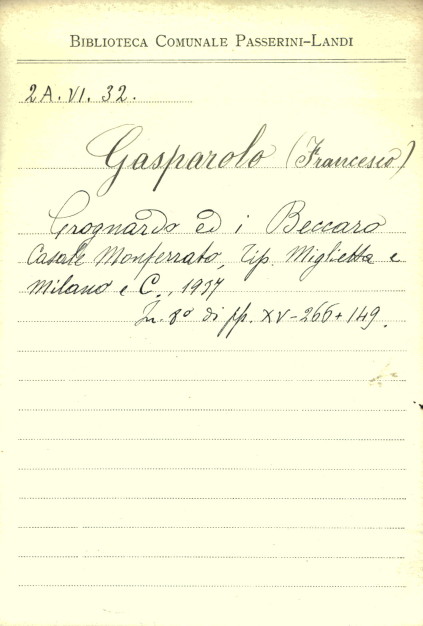 BIBLIOTECA COMUNALE PASSERINI-LANDI
2A. VI. 32.
Gasparolo (Francesco)
Grognardo ed i Beccaro
Casale Monferrato, Tip. Miglietta e
Milano e C., 1937
In. 8° di pp. XV-266+149.